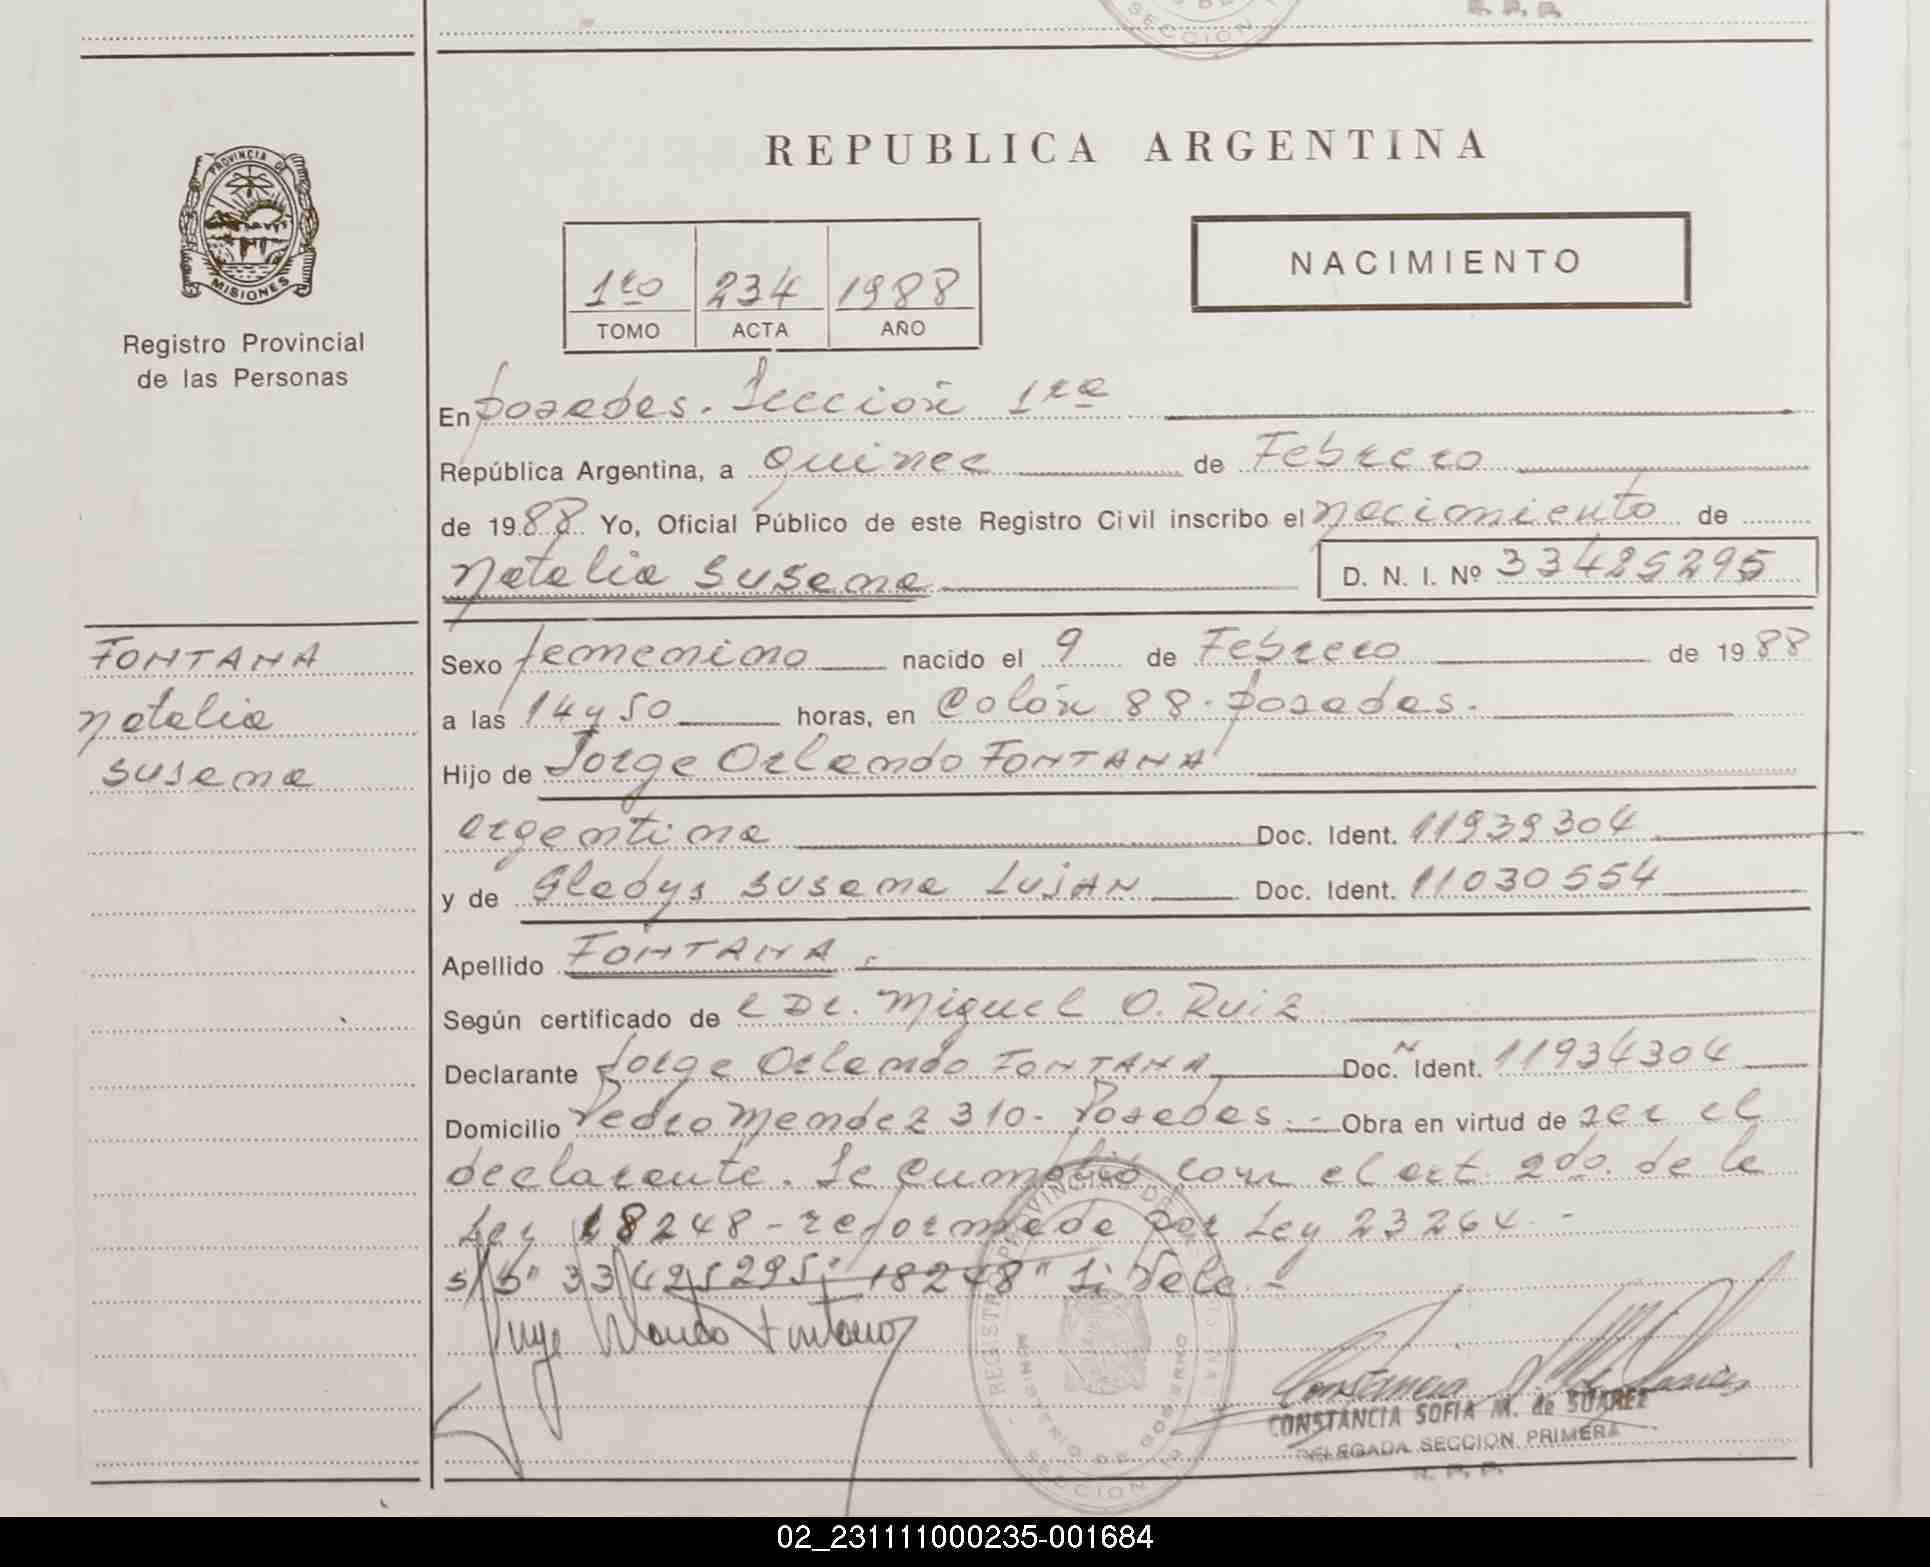 REPUBLICA ARGENTINA
PROVINCIA DE
MISIONES
Registro Provincial
de las Personas
1ro 234 1988
TOMO ACTA AÑO
NACIMIENTO
En Posadas. Sección 1ra
República Argentina, a quince de Febrero
de 1988 Yo, Oficial Público de este Registro Civil inscribo el nacimiento de
Natalia Susana D. N. I. Nº 33425295
FONTANA
Natalia
Susana
Sexo femenino nacido el 9 de Febrero de 1988
a las 14 y 50 horas, en Colón 88. Posadas.
Hijo de Jorge Orlando FONTANA
argentina Doc. Ident. 11939304
y de Gladys Susana LUJAN Doc. Ident. 11030554
Apellido FONTANA.
Según certificado de el Dr. Miguel O. Ruiz
Declarante Jorge Orlando FONTANA Doc. Ident. 11934304
Domicilio Pedro Mendez 310- Posadas.- Obra en virtud de ser el
declarante. Se cumplió con el art. 2do. de la
Ley 18248 - reformada por Ley 23264.-
s/b" 33425295" 18248" Si Vale.-
Jorge Orlando Fontana
CONSTANCIA SOFIA M. de SUAREZ
DELEGADA SECCION PRIMERA
R. P. P.
MINISTERIO DE GOBIERNO
SECCION 1a
02_231111000235-001684